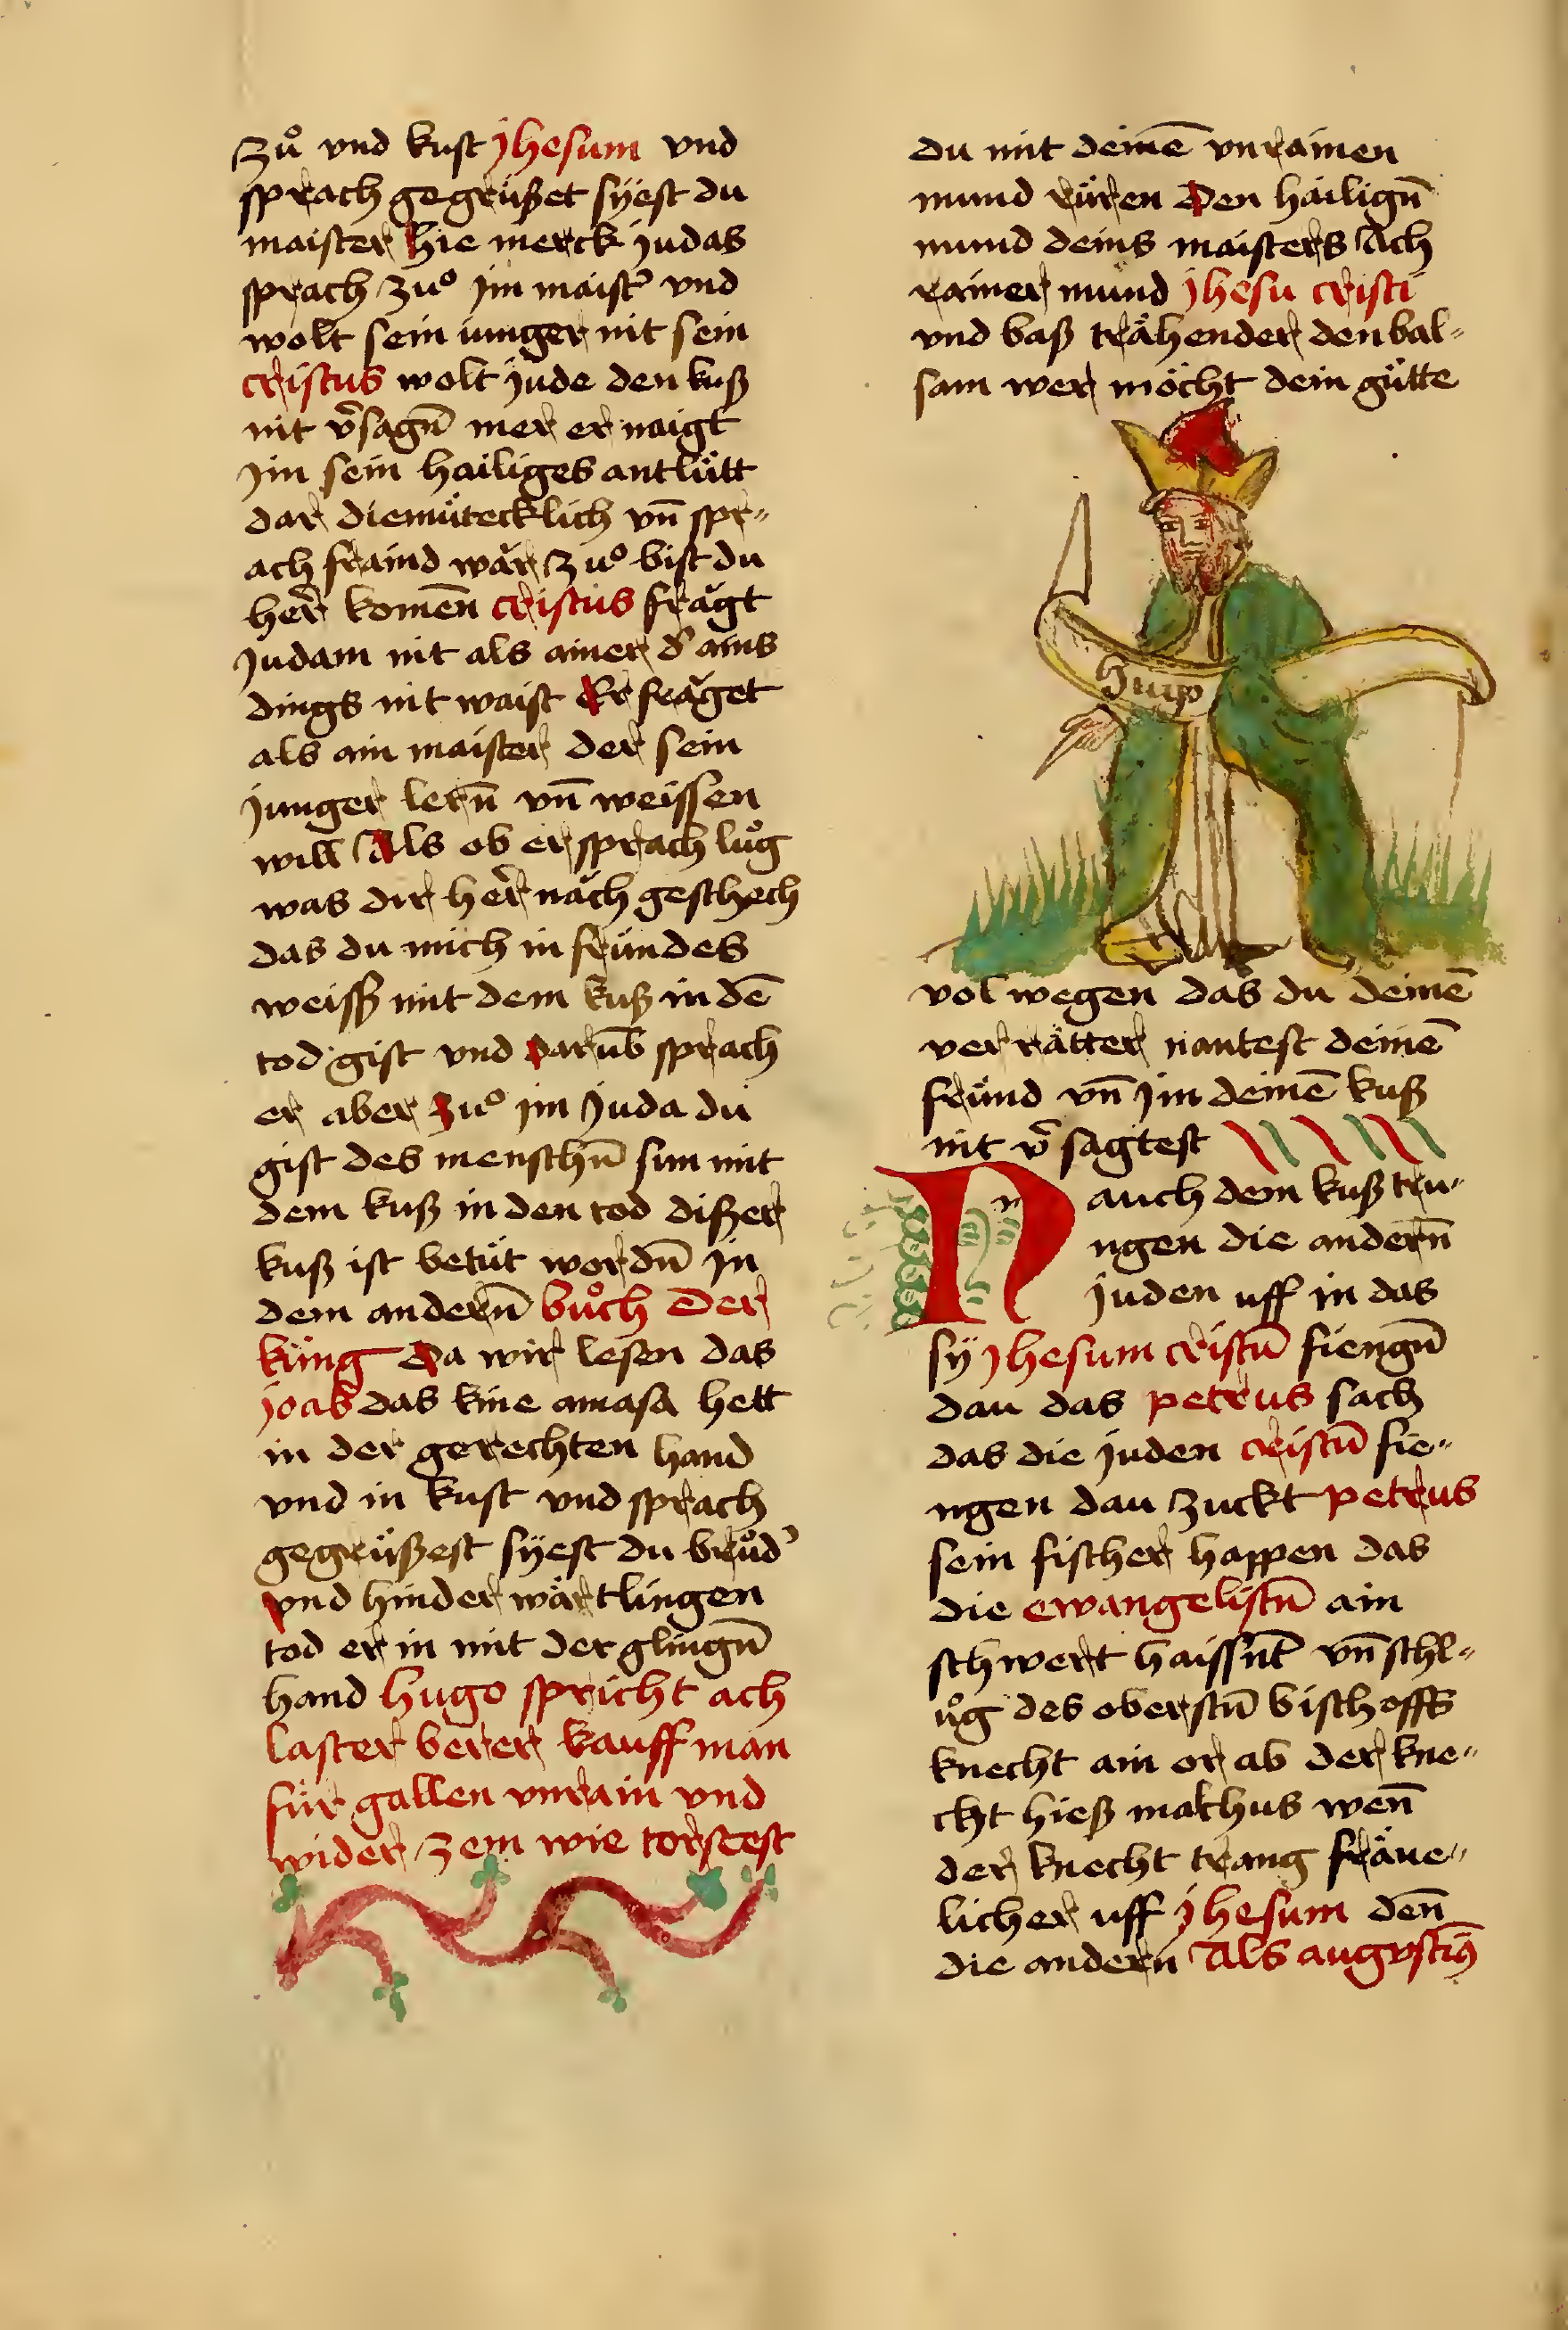 zů vnd kust jhesum vnd
sprach gegrüßet sÿest du
maister hie merck judas
sprach zuͦ jm maist᷑ vnd
wolt sein iunger nit sein
cristus wolt jude den kuß
nit v᷑sagn̄ mer er naigt
jm sein hailiges antlütt
dar diemütecklich vn̄ spr⸗
ach fraind wär zuͦ bist du
her᷑ komen̄ cristus frägt
judam nit als ainer d᷑ ains
dings nit waist Er fräget
als ain maister der sein
junger lern̄ vn̄ weissen
will Als ob er sprach lůg
was dir her᷑ näch geschech
das du mich in fründes
weiss mit dem kuß in dē
tod gist vnd darum̄b sprach
er aber zuͦ jm juda du
gist des menschn̄ sun mit
dem kuß in den tod dißer
kuß ist betüt wordn̄ jn
dem andern̄ bůch Der
küng da wir lesen das
joab das kine amasa hett
in der gerechten hand
vnd in kust vnd sprach
gegrüßest sÿest du brůd᷑
vnd hinder wärtlingen
tod er in mit der glingn̄
hand hugo spricht ach
laster berer kauffman
für gallen vnrain vnd
wider zem wie torstest
du mit deinē vnrainen
mund rüren den hailign̄
mund deins maisters Ach
rainer mund jhesu cristi
vnd baß trähender den bal⸗
sam wer möcht dein gütte
hugo
vol wegen das du deinē
verrätter nantest deinē
fründ vn̄ jm deinē kuß
nit v᷑sagtest
Nauch dem kuß tru⸗
ngen die andern̄
juden uff in das
sÿ jhesum cristū fiengn̄
dau das petrus sach
das die juden cristū fie⸗
ngen dau zuckt petrus
sein fischer happen das
die ewangelistn̄ ain
schwert haissnt̄ vn̄ schl⸗
ůg des oberstn̄ bischoffs
knecht ain or ab der kne⸗
cht hieß malchus wen̄
der knecht trang fräue⸗
licher uff jhesum den̄
die andern Als augustin᷑